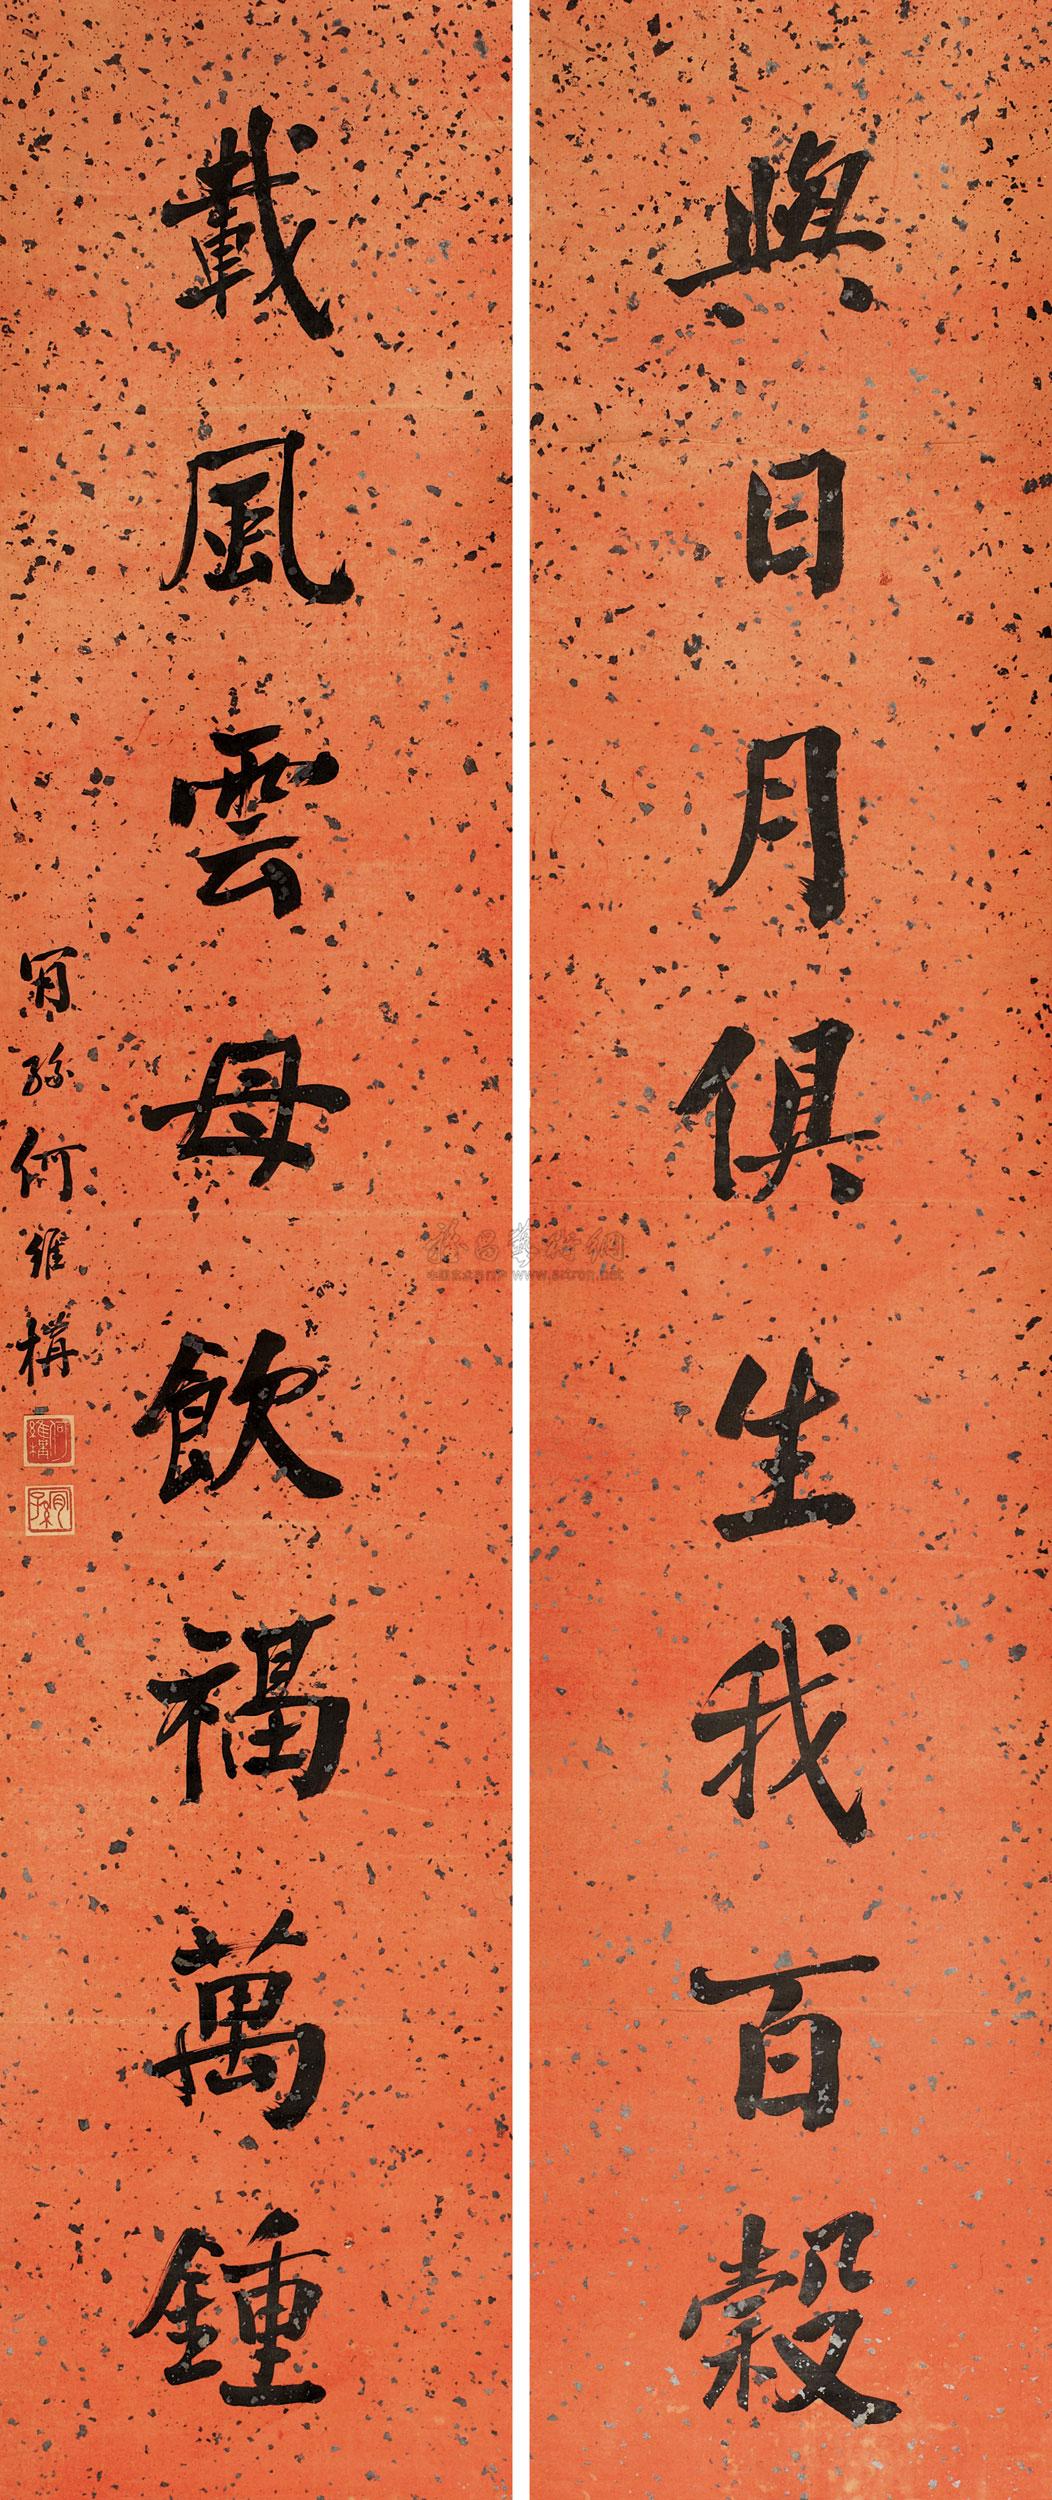 與日月俱生我百穀
載風雲母飲福萬鍾
肎孫何維構
雅昌藝術網
www.artron.net